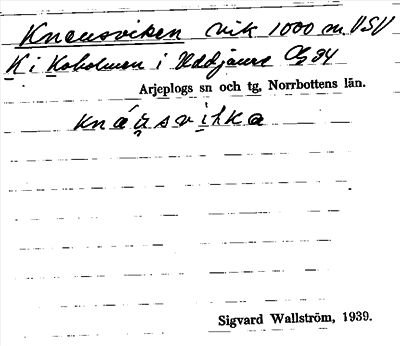 Knausviken vik 1000 m VSV
K i Koholmen i Uddjaure
Arjeplogs sn och tg, Norrbottens län.
knáu̯svihka
Sigvard Wallström, 1939.